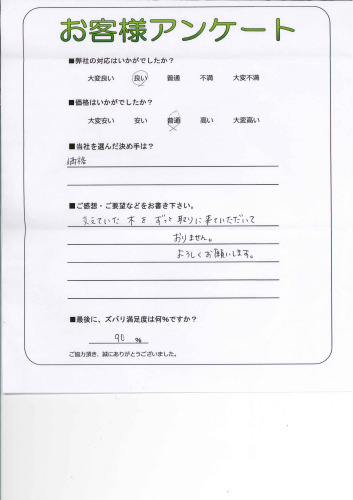 お客様アンケート
■弊社の対応はいかがでしたか?
大変良い 良い 普通 不満 大変不満
■価格はいかがでしたか?
大変安い 安い 普通 高い 大変高い
■当社を選んだ決め手は?
価格
■ご感想・ご要望などをお書き下さい。
していた 木を ずっと 取りに来ていただいて
おりません。
よろしくお願いします。
■最後に、ズバリ満足度は何%ですか?
90 %
ご協力頂き、誠にありがとうございました。